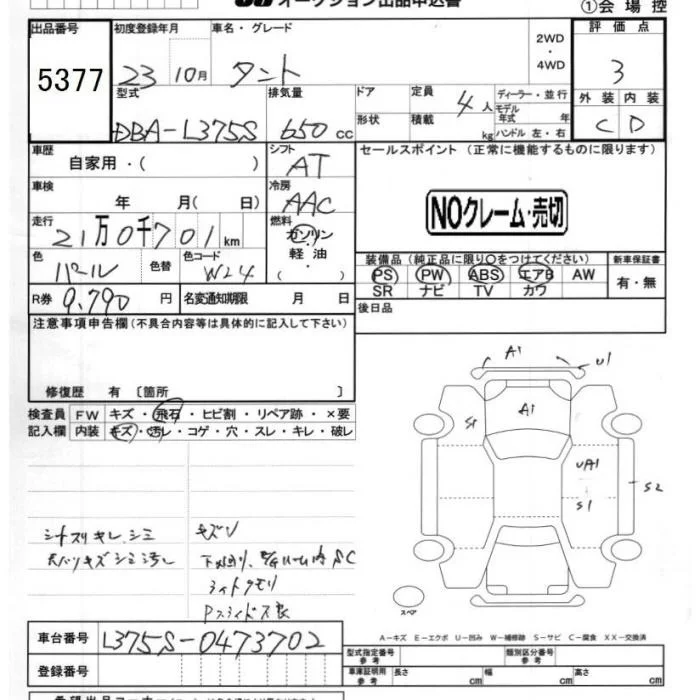 オークション出品申込書
①会場控
出品番号
5377
初度登録年月
23 10月
車名・グレード
タント
2WD
・
4WD
評価点
3
型式
DBA-L375S
排気量
650 cc
ドア
形状
定員
4人
積載
kg
ディーラー・並行
モデル
年式 年
ハンドル 左・右
外装 内装
C D
車歴
自家用・( )
シフト
AT
セールスポイント (正常に機能するものに限ります)
NOクレーム・売切
車検
年 月( 日)
冷房
AAC
走行
21万0千701km
燃料
ガソリン
軽油
( ・ )
色
パール
色替
色コード
W24
装備品(純正品に限り○をつけてください)
PS PW ABS エアB AW
SR ナビ TV カワ
新車保証書
有・無
R券 9,790円
名変通知期限 月 日
後日品
注意事項申告欄(不具合内容等は具体的に記入して下さい)
修復歴 有 〔箇所 〕
検査員
記入欄
FW キズ・飛石・ヒビ割・リペア跡・×要
内装 キズ・汚レ・コゲ・穴・スレ・キレ・破レ
A1
U1
A1
S1
UA1
S1
S2
スペア
シートスリキレ、シミ
キズV
ライトクモリ
A-キズ E-エクボ U-凹み W-補修跡 S-サビ C-腐食 XX-交換済
車台番号
L375S-0473702
登録番号
型式指定番号
参考
類別区分番号
参考
車庫証明用
参考
長さ cm
幅 cm
高さ cm